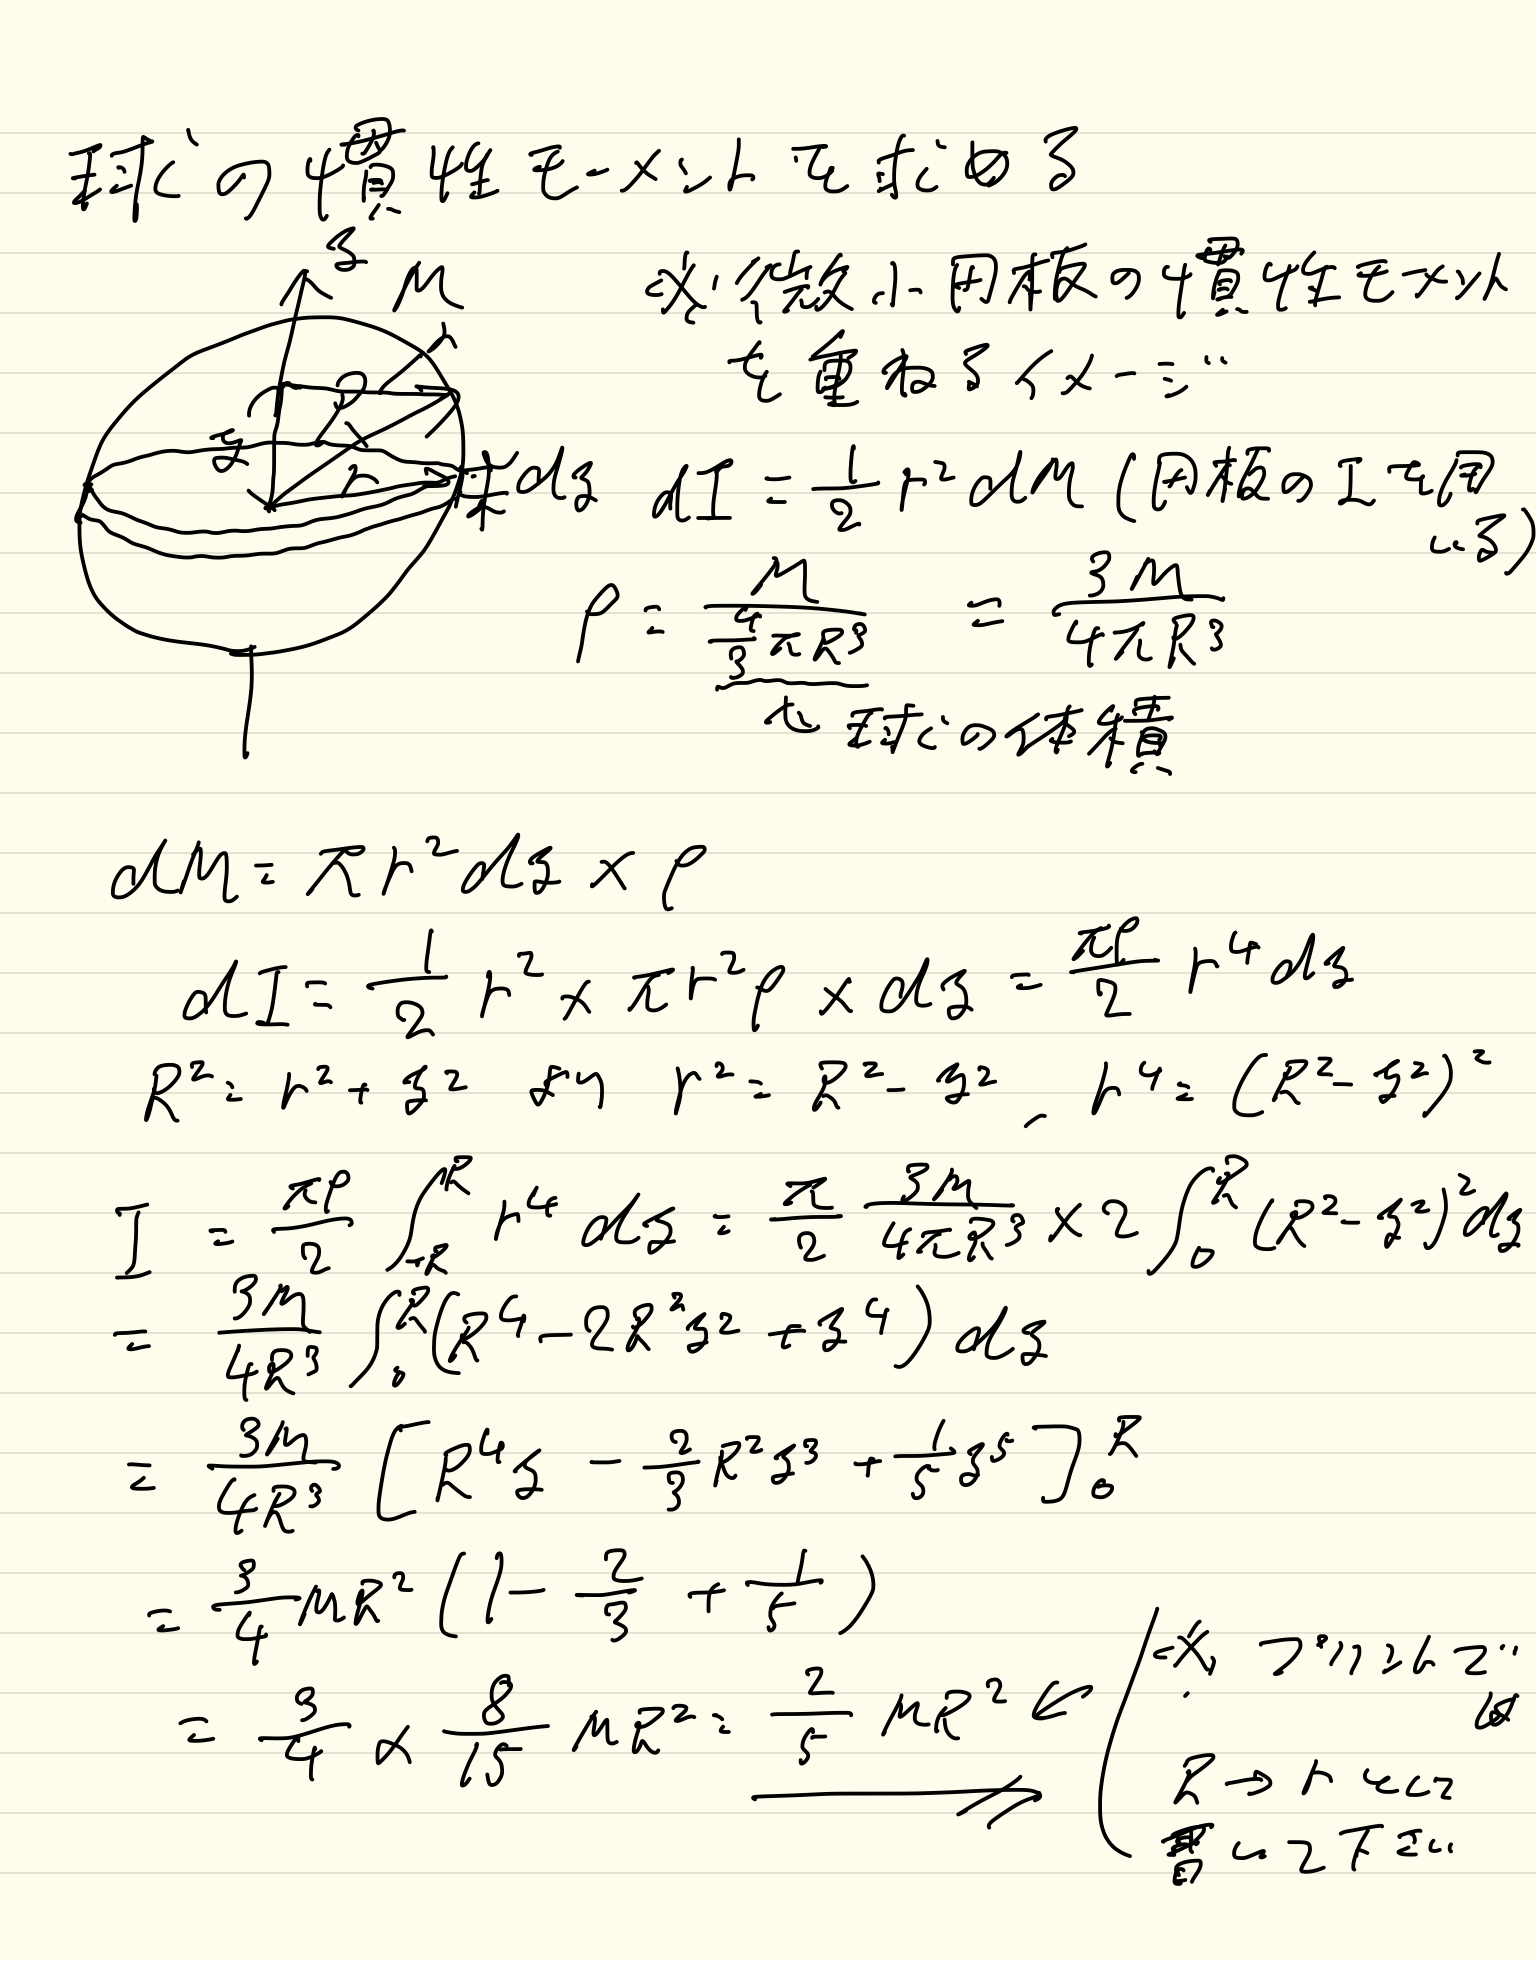 球の慣性モーメントを求める
z M
※微小円板の慣性モーメント
を重ねるイメージ
R
z
r
dz
dI = 1/2 r² dM (円板のIを用いる)
ρ = M / (4/3 πR³) = 3M / 4πR³
球の体積
dM = πr²dz × ρ
dI = 1/2 r² × πr²ρ × dz = πρ/2 r⁴ dz
R² = r² + z² より r² = R² - z², r⁴ = (R² - z²)²
I = πρ/2 ∫_{-R}^{R} r⁴ dz = π/2 3M/4πR³ × 2 ∫_0^R (R² - z²)² dz
= 3M/4R³ ∫_0^R (R⁴ - 2R²z² + z⁴) dz
= 3M/4R³ [R⁴z - 2/3 R²z³ + 1/5 z⁵]_0^R
= 3/4 MR² (1 - 2/3 + 1/5)
= 3/4 × 8/15 MR² = 2/5 MR² ←
※プリントでは
R→rとして
書いて下さい